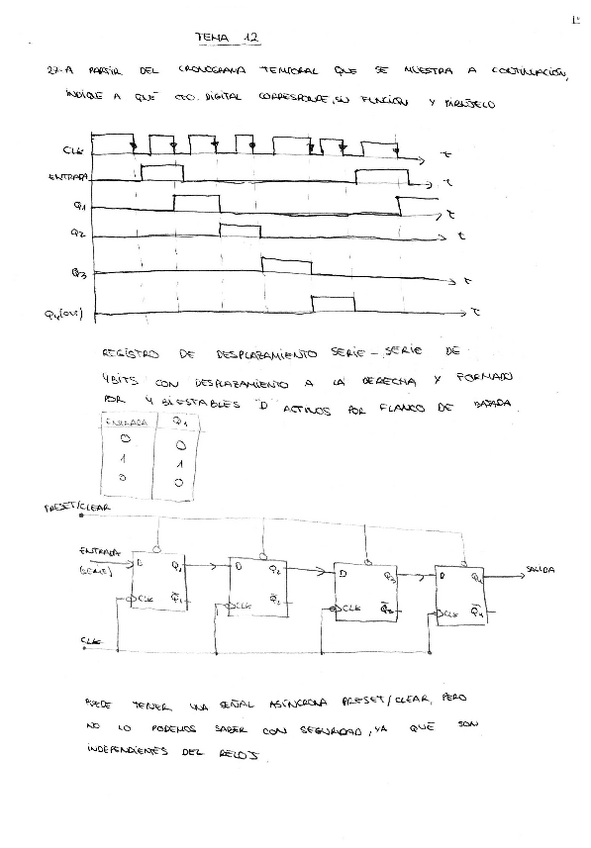 1º
TEMA 12
27-A PARTIR DEL CRONOGRAMA TEMPORAL QUE SE MUESTRA A CONTINUACIÓN,
INDIQUE A QUÉ CTO. DIGITAL CORRESPONDE, SU FUNCIÓN Y DIBÚJELO
CLK t
ENTRADA t
Q1 t
Q2 t
Q3 t
Q4(OUT) t
REGISTRO DE DESPLAZAMIENTO SERIE-SERIE DE
4BITS CON DESPLAZAMIENTO A LA DERECHA Y FORMADO
POR 4 BIESTABLES D ACTIVOS POR FLANCO DE BAJADA.
ENTRADA Q1
0 0
1 1
0 0
PRESET/CLEAR
ENTRADA (SERIE) D Q1 D Q2 D Q3 D Q4 SALIDA
CLK Q̅1 CLK Q̅2 CLK Q̅3 CLK Q̅4
CLK
PUEDE TENER UNA SEÑAL ASÍNCRONA PRESET/CLEAR, PERO
NO LO PODEMOS SABER CON SEGURIDAD, YA QUE SON
INDEPENDIENTES DEL RELOJ.